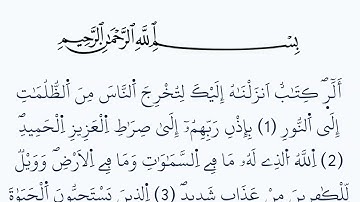 بِسْمِ ٱللَّهِ ٱلرَّحْمَٰنِ ٱلرَّحِيمِ
أَلَٓرۖ كِتَٰبٌ اَنزَلْنَٰهُ إِلَيْكَ لِتُخْرِجَ اَ۬لنَّاسَ مِنَ اَ۬لظُّلُمَٰتِ
إِلَى اَ۬لنُّورِ (1) بِإِذْنِ رَبِّهِمُۥٓ إِلَىٰ صِرَٰطِ اِ۬لْعَزِيزِ اِ۬لْحَمِيدِۖ
(2) اِ۬للَّهُ اُ۬لذِے لَهُۥ مَا فِے اِ۬لسَّمَٰوَٰتِ وَمَا فِے اِ۬لَارْضِۖ وَوَيْلٞ
لِّلْكٰ۪فِرِينَ مِنْ عَذَابٖ شَدِيدٍۖ (3) اِ۬لذِينَ يَسْتَحِبُّونَ اَ۬لْحَيَوٰةَ